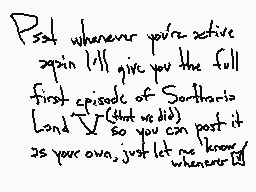 Psst whenever you're active
again I'll give you the full
first episode of Sortharia
Land (that we did)
so you can post it
as your own, just let me know
whenever